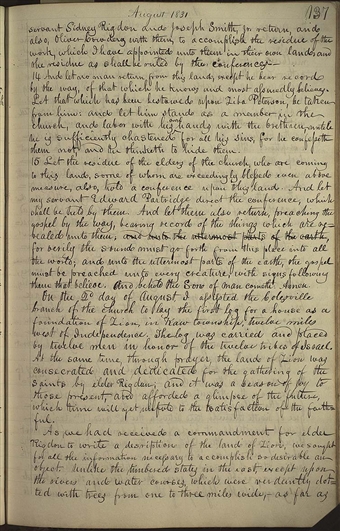 August 1831 137
servant Sidney Rigdon and Joseph Smith, jr. return, and
also, Oliver Cowdery with them to accomplish the residue of the
work, which I have appointed unto them in their own land: and
the residue as shall be ruled by the conferences.
14 And let no man return from this land, except he bear record
by the way, of that which he knows and most assuredly believes.
Let that which has been bestowed upon Ziba Peterson, be taken
from him: and let him stand as a member in the
church, and labor with his hands with the brethren, until
he is sufficiently chastened for all his sins, for he confesseth
them not and he thinketh to hide them.
15 Let the residue of the elders of the church, who are coming
to this land, some of whom are exceedingly blessed even above
measure, also, hold a conference upon this land. And let
my servant Edward Partridge direct the conference, which
shall be held by them. And let them also return, preaching the
gospel by the way, bearing record of the things which are re-
vealed unto them;
for verily the sound must go forth from this place into all
the world; and unto the uttermost parts of the earth, the gospel
must be preached unto every creature, with signs following
them that believe. And, behold the Son of man cometh. Amen.
On the 2d day of August I assisted the Colesville
branch of the church to lay the first log for a house as a
foundation of Zion, in Kaw township, twelve miles
west of Independence. The log was carried and placed
by twelve men in honor of the twelve tribes of Israel.
At the same time, through prayer, the land of Zion was
consecrated and dedicated for the gathering of the
saints by elder Rigdon; and it was a season of joy to
those present, and afforded a glimpse of the future,
which time will yet unfold to the satisfaction of the faith-
ful.
As we had received a commandment for elder
Rigdon to write a description of the land of Zion, we sought
for all the information necessary to accomplish so desirable an
object. Unlike the timbered states in the east, except upon
the rivers and water courses, which were verdantly dot-
ted with trees from one to three miles wide,- as far as